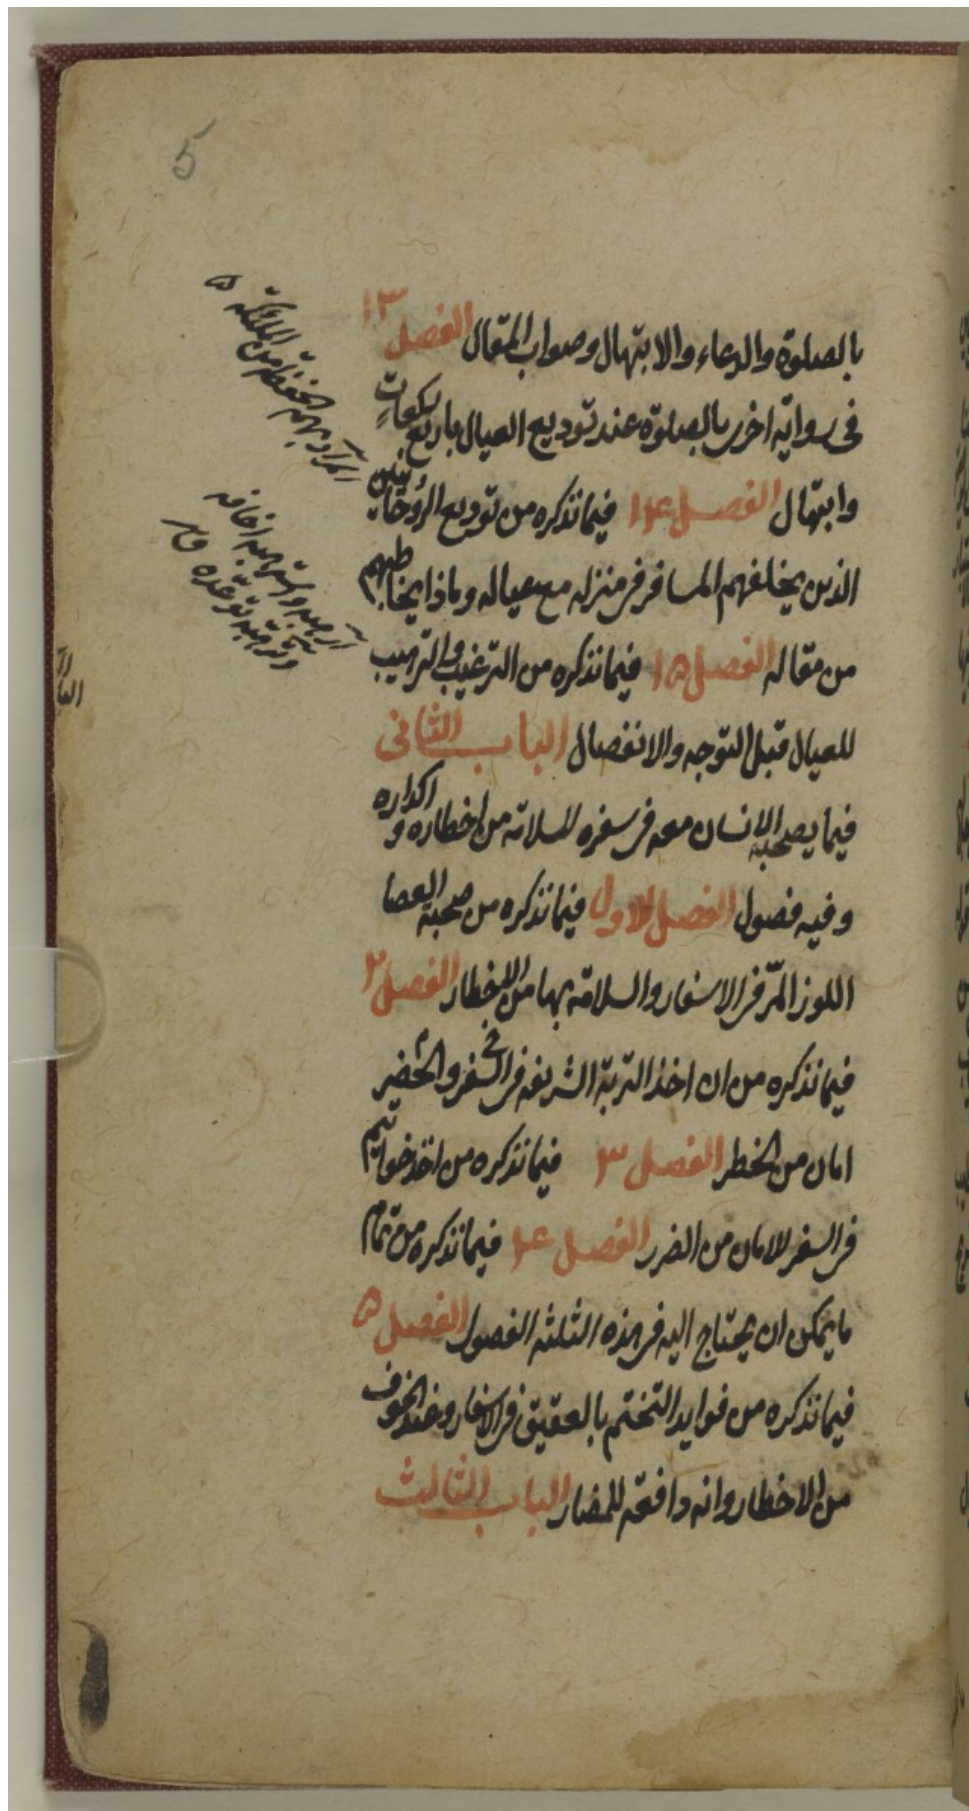 5
بالصلوة والدعاء والابتهال وصواب المقال الفصل ١٣
فى رواية اخرى بالصلوة عند توديع العيال باربع ركعات
وابتهال الفصل ١٤ فيما نذكره من توديع الروحانيين
الذين يخلفهم المسافر فى منزله مع عياله وماذا يخاطبهم
من مقاله الفصل ١٥ فيما نذكره من الترغيب والترهيب
للعيال قبل التوجه والانفصال الباب الثانى
فيما يصحبه الانسان معه فى سفره للسلامة من اخطاره واكداره
وفيه فصول الفصل الاول فيما نذكره من صحبة العصا
اللوز المرّ فى الاسفار والسلامة بها من الاخطار الفصل ٢
فيما نذكره من ان اخذ التربة الشريفة فى السفر والحضر
امان من الخطر الفصل ٣ فيما نذكره من اخذ خواتيم
فى السفر للامان من الضرر الفصل ٤ فيما نذكره من تمام
ما يمكن ان يحتاج اليه فى هذه الثلثة الفصول الفصل ٥
فيما نذكره من فوايد التختم بالعقيق فى الاسفار وعند الخوف
من الاخطار وانه دافعة للمضار الباب الثالث
المراد بهم الحفظة من الملائكة